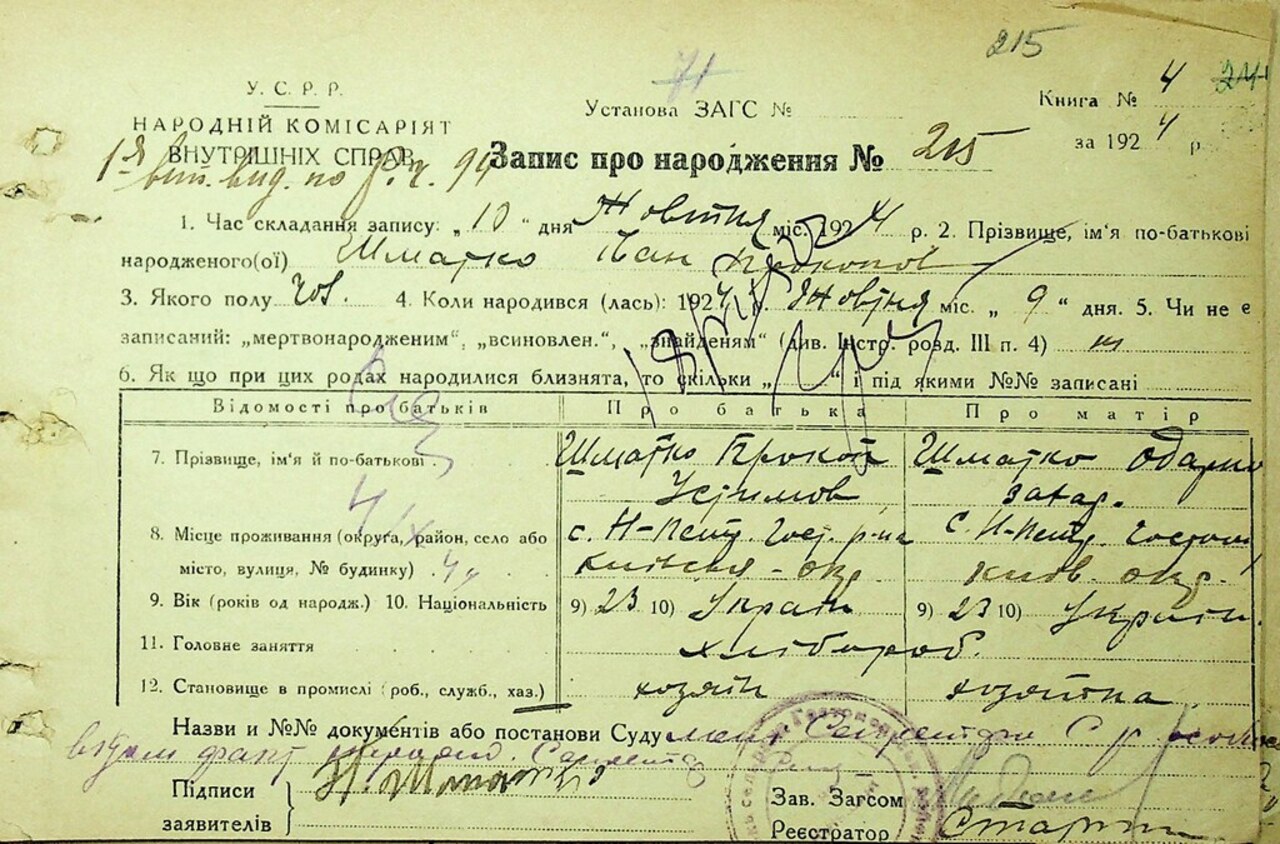 215
71
У. С. Р. Р.
НАРОДНІЙ КОМІСАРІЯТ
ВНУТРІШНІХ СПРАВ
Установа ЗАГС №
Книга № 4 24
за 1924 р
1-я вип. вид. по
Запис про народження № 215
1. Час складання запису: „10" дня Жовтня міс. 1924 р. 2. Прізвище, ім'я по-батькові
народженого(ої) Шматко Іван Прокопов
3. Якого полу чол. 4. Коли народився (лась): 1924 р. Жовтня міс. „ 9 " дня. 5. Чи не є
записаний: „мертвонародженим", „всиновлен.", „знайденям" (див. Інстр. розд. III п. 4)
6. Як що при цих родах народилися близнята, то скільки „ " і під якими №№ записані
Відомості про батьків Про батька Про матір
7. Прізвище, ім'я й по-батькові . Шматко Прокоп Шматко Одарка
Устимов Захар.
8. Місце проживання (округа, район, село або с. Н-Петр. Гост. р-на с. Н-Петр. Гостом
місто, вулиця, № будинку) Київськ. окр. Київ. окр.
9. Вік (років од народж.) 10. Національність 9) 23 10) Україн 9) 23 10) Україн.
11. Головне заняття хлібороб.
12. Становище в промислі (роб., служб., хаз.) хозяїн хозяйка
Назви и №№ документів або постанови Суду
факт
Підписи
заявителів
Зав. Загсом
Реєстратор